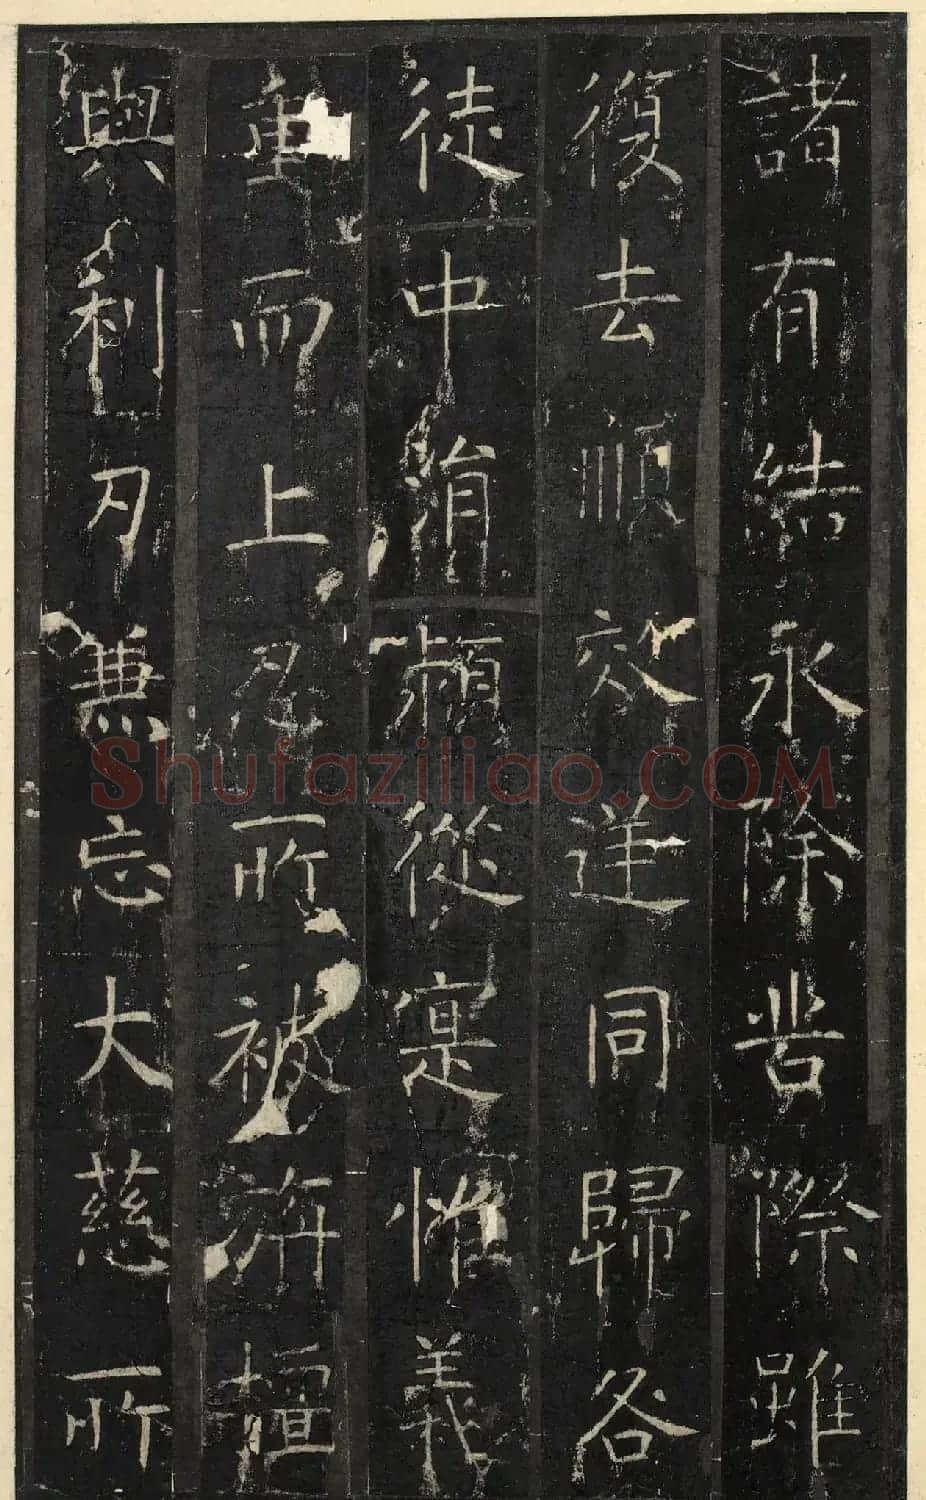 諸有結永除苦際雖
復去順效逆同歸各
徒中從寔惟義
重而上忍所被旃檀
與利刃兼忘大慈所
Shufaziliao.COM